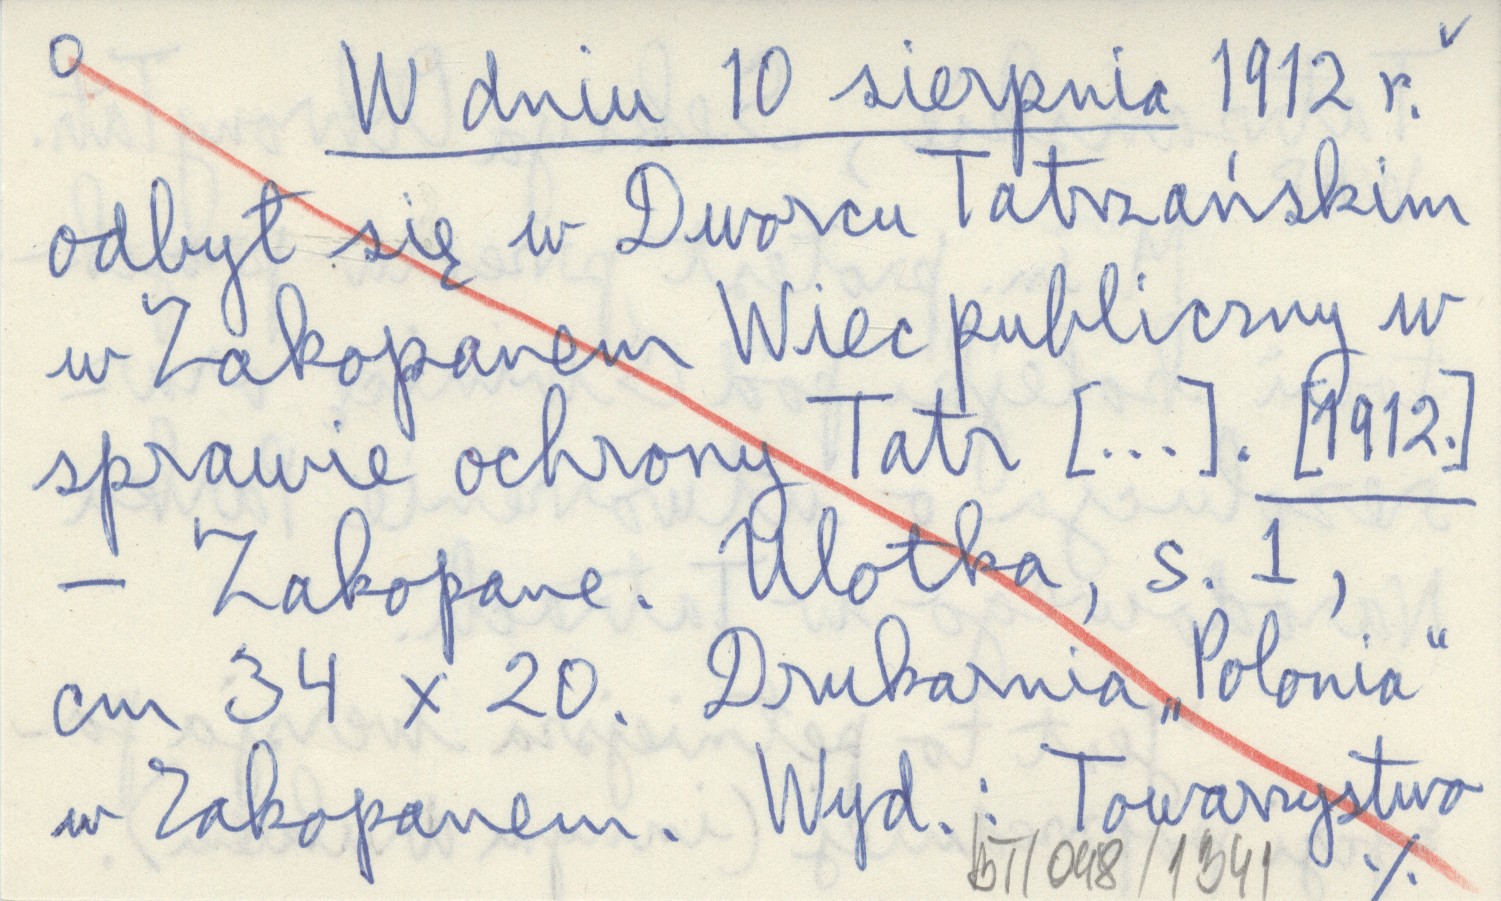 O W dniu 10 sierpnia 1912 r. v
odbył się w Dworcu Tatrzańskim
w Zakopanem Wiec publiczny w
sprawie ochrony Tatr [...]. [1912.]
— Zakopane. Ulotka, s. 1,
cm 34 x 20. Drukarnia „Polonia"
w Zakopanem. Wyd.: Towarzystwo
BT/048/1341 ./.